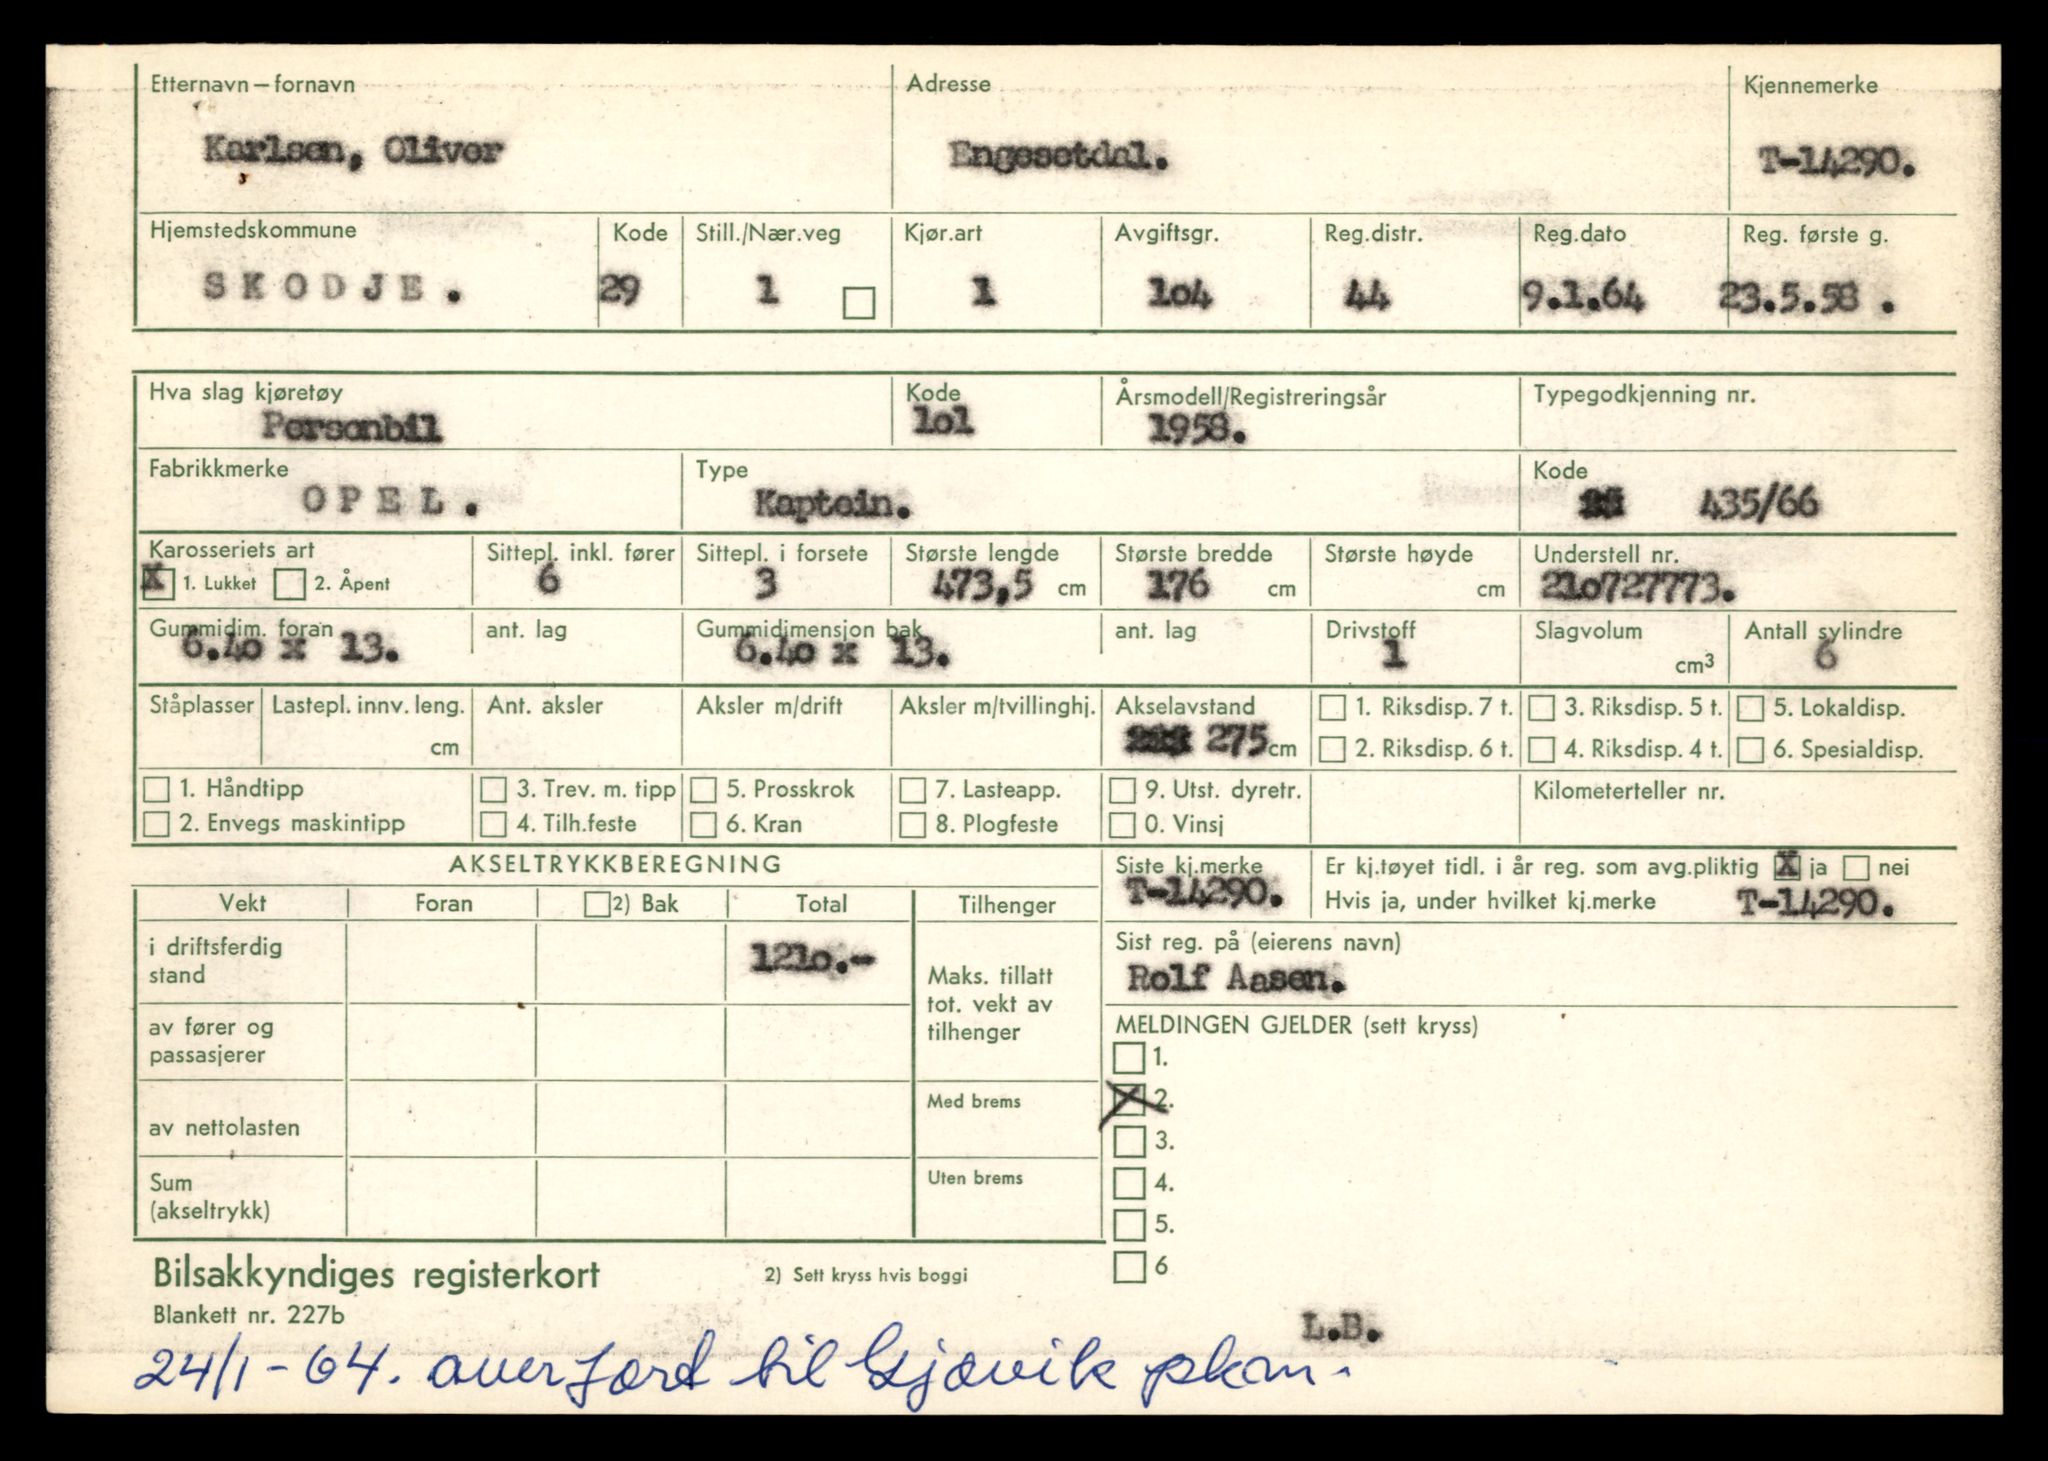 Etternavn – fornavn Adresse Kjennemerke
Karlsen, Oliver Engesetdal. T-14290.
Hjemstedskommune Kode Still./Nær.veg Kjør.art Avgiftsgr. Reg.distr. Reg.dato Reg. første g.
SKODJE. 29 1 1 1o4 44 9.1.64 23.5.58 .
Hva slag kjøretøy Kode Årsmodell/Registreringsår Typegodkjenning nr.
Personbil 1o1 1958.
Fabrikkmerke Type Kode
OPEL. Kaptein. 435/66
Karosseriets art Sittepl. inkl. fører Sittepl. i forsete Største lengde Største bredde Største høyde Understell nr.
X 1. Lukket 2. Åpent 6 3 473,5 cm 176 cm cm 21o727773.
Gummidim. foran ant. lag Gummidimensjon bak ant. lag Drivstoff Slagvolum Antall sylindre
6.4o x 13. 6.4o x 13. 1 cm³ 6
Ståplasser Lastepl. innv. leng. Ant. aksler Aksler m/drift Aksler m/tvillinghj. Akselavstand 1. Riksdisp. 7 t. 3. Riksdisp. 5 t. 5. Lokaldisp.
cm 275 cm 2. Riksdisp. 6 t. 4. Riksdisp. 4 t. 6. Spesialdisp.
1. Håndtipp 3. Trev. m. tipp 5. Prosskrok 7. Lasteapp. 9. Utst. dyretr. Kilometerteller nr.
2. Envegs maskintipp 4. Tilh.feste 6. Kran 8. Plogfeste 0. Vinsj
AKSELTRYKKBEREGNING Siste kj.merke Er kj.tøyet tidl. i år reg. som avg.pliktig X ja nei
T-14290. Hvis ja, under hvilket kj.merke T-14290.
Vekt Foran 2) Bak Total Tilhenger
i driftsferdig stand 121o.-
Sist reg. på (eierens navn)
Rolf Aasen.
Maks. tillatt
tot. vekt av
tilhenger
av fører og
passasjerer
MELDINGEN GJELDER (sett kryss)
1.
X 2.
Med brems
av nettolasten
3.
Uten brems
4.
Sum
(akseltrykk)
5.
6
Bilsakkyndiges registerkort 2) Sett kryss hvis boggi
Blankett nr. 227b
L.B.
24/1-64. overført til Gjøvik pkm.